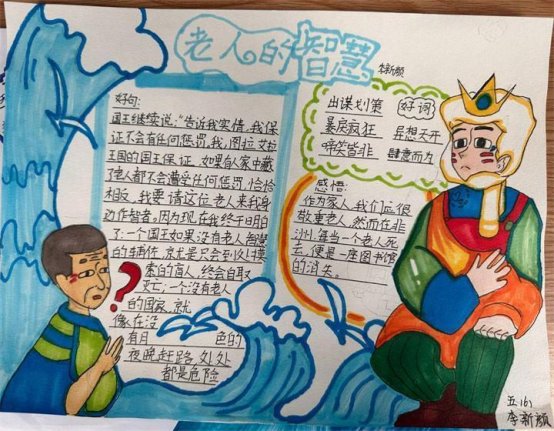 老人的智慧
李新颜
好句:
国王继续说:"告诉我实情,我保
证不会有任何惩罚,我,图拉艾拉
王国的国王保证,如果有人家中藏
了老人都不会遭受任何惩罚,恰恰
相反,我要请这位老人来我身
边作智者,因为现在我终于明白
了一个国王如果没有老人智慧
的辅佐,就是只会到处摸
索的盲人,终会自取
灭亡;一个没有老人
的国家,就
像在没
有月 色的
夜晚赶路,处处
都是危险
出谋划策 好词
暴戾疯狂 异想天开
啼笑皆非 肆意而为
感悟:
作为家人,我们应很
敬重老人,然而在非
洲,每当一个老人死
去,便是一座图书馆
的消失。
五(6)
李新颜